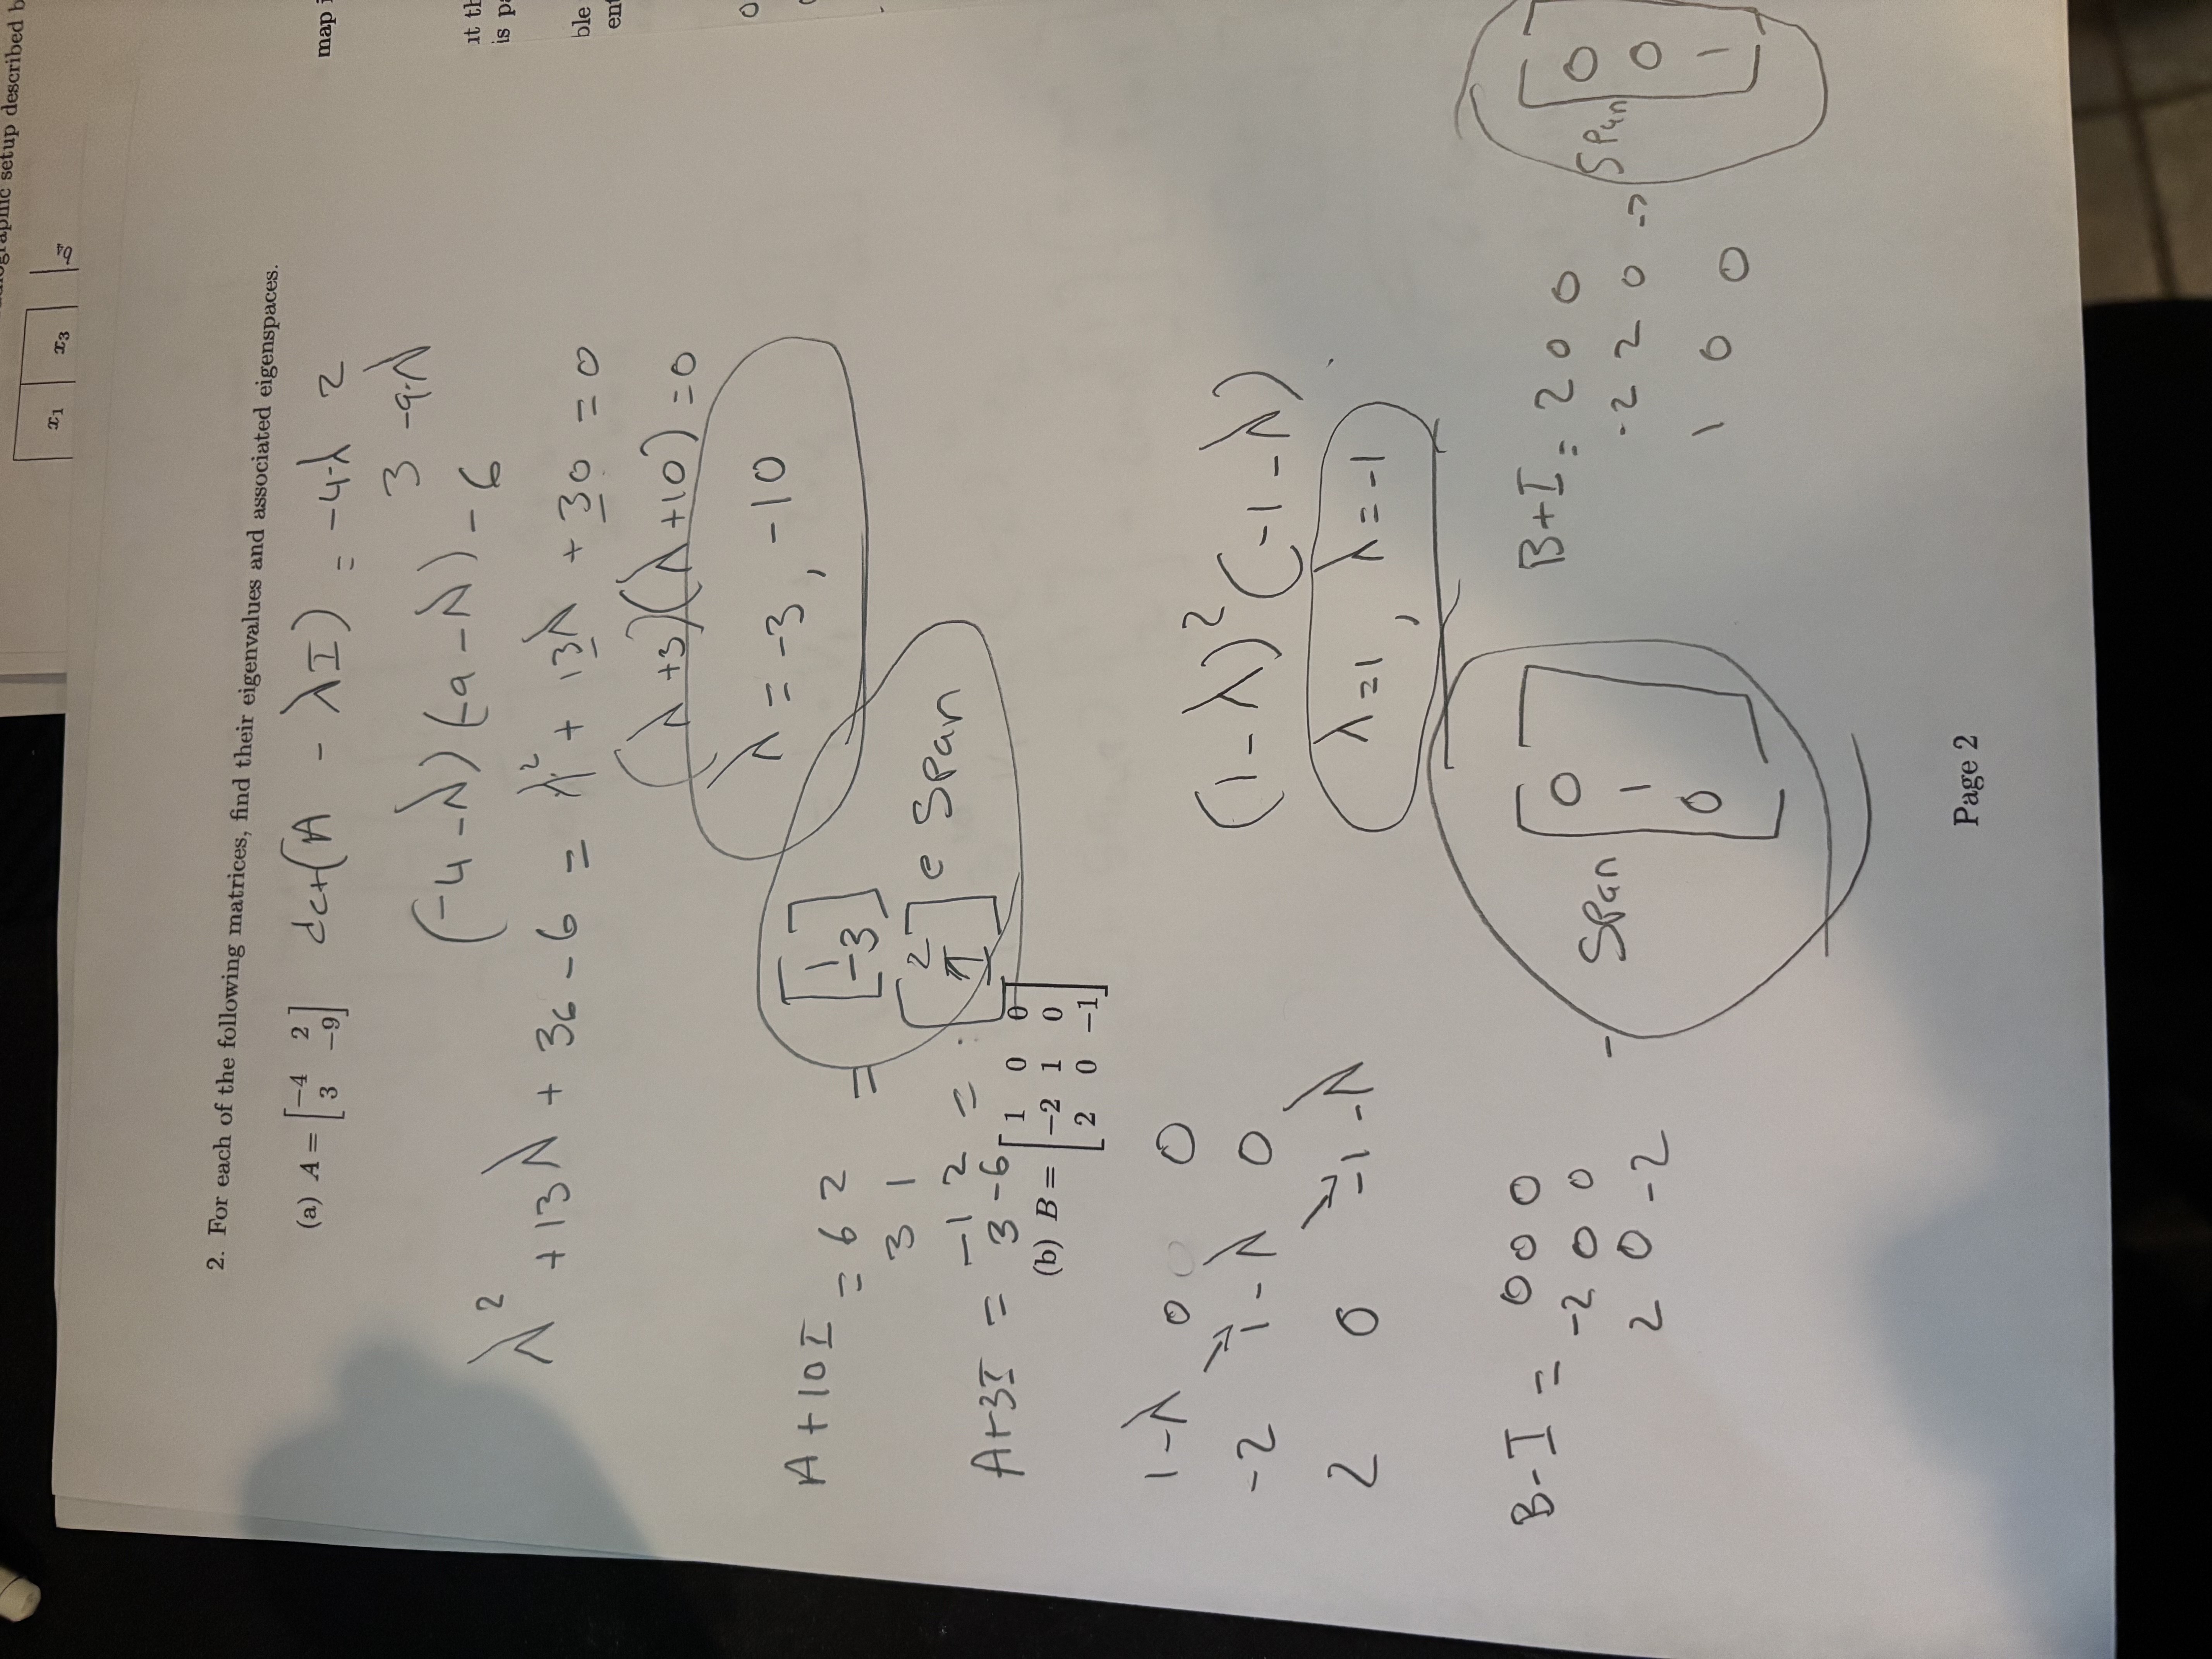 ographic setup described b
x₁ x₃ b₄
2. For each of the following matrices, find their eigenvalues and associated eigenspaces.
(a) A = [−4 2
3 −9]
det(A - λI) = -4-λ 2
3 -9-λ
(-4-λ)(-9-λ)-6
λ² +13λ + 36 - 6 = λ² + 13λ + 30 = 0
(λ+3)(λ+10) = 0
λ = -3, -10
A+10I = 6 2 = [1
-3]
3 1
A+3I = -1 2 = [2
1] e Span
3 -6
(b) B = [1 0 0
−2 1 0
2 0 −1]
1-λ 0 0
-2 1-λ 0
2 0 -1-λ
(1-λ)²(-1-λ)
λ=1, λ=-1
B-I = 0 0 0
-2 0 0
2 0 -2
- Span [0
1
0]
B+I = 2 0 0
-2 2 0
1 0 0
-> Span [0
0
1]
Page 2
map i
is p
ble
ent